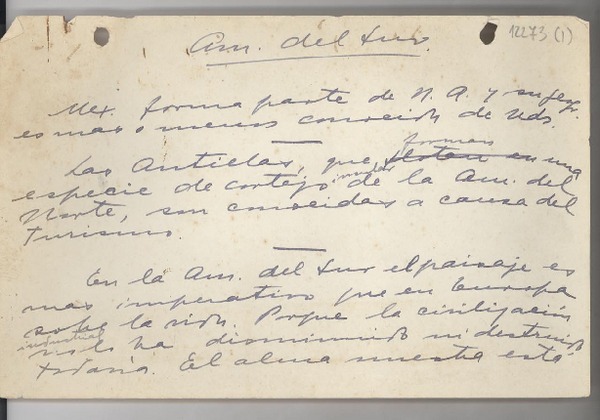 12273 (1)
Am. del Sur.
Mex. forma parte de N. A. y su geogr.
es mas o menos conocida de Uds.
formas
Las Antillas, que flotan en una
especie de cortejo insular de la Am. del
Norte, son conocidas a causa del
Turismo.
En la Am. del Sur el paisaje es
mas imperativo que en Europa
sobre la vida. Porque la civilización
industrial
no lo ha disminuido ni destruido
todavía. El alma nuestra está